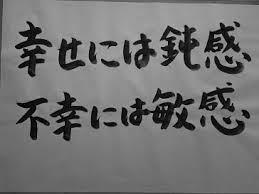 幸せには鈍感
不幸には敏感